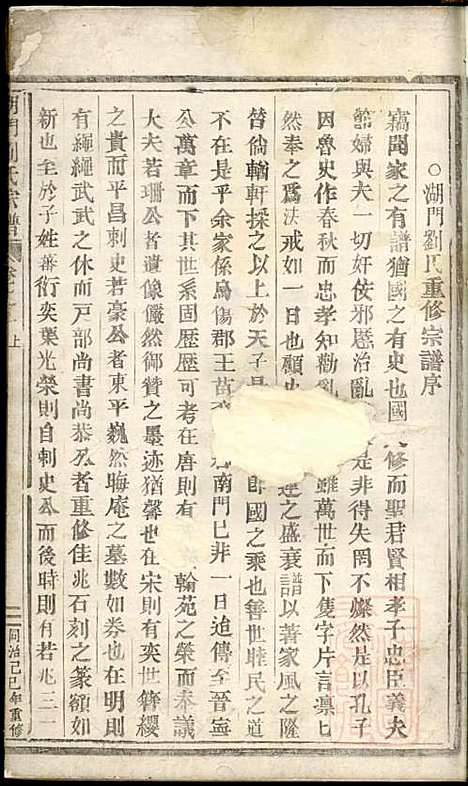 ○湖門劉氏重修宗譜序
竊聞家之有譜猶國之有史也國 修而聖君賢相孝子忠臣義夫
節婦與夫一切奸佞邪慝治亂 是非得失罔不燦然是以孔子
因魯史作春秋而忠孝知勸亂 雖萬世而下隻字片言凛匕
然奉之爲法戒如一日也顧史 運之盛衰譜以著家風之隆
替俏輶軒採之以上於天子是 卽國之乘也善世睦民之道
不在是乎余家係烏傷郡王苗 南門已非一日迨傳至晉寧
公萬章而下其世系固歷歷可考在唐則有 翰苑之榮而奉議
大夫若珊公者遺像儼然御贊之墨迹猶馨也在宋則有奕世簪纓
之貴而平昌刺史若豪公者東平巍然晦庵之墓數如券也在明則
有繩繩武武之休而戸部尚書尚恭公者重修佳兆石刻之篆額如
新也至於子姓蕃衍奕葉光榮則自刺史公而後時則有若兆三一
湖門劉氏宗譜
卷之一
上
同治己巳年重修